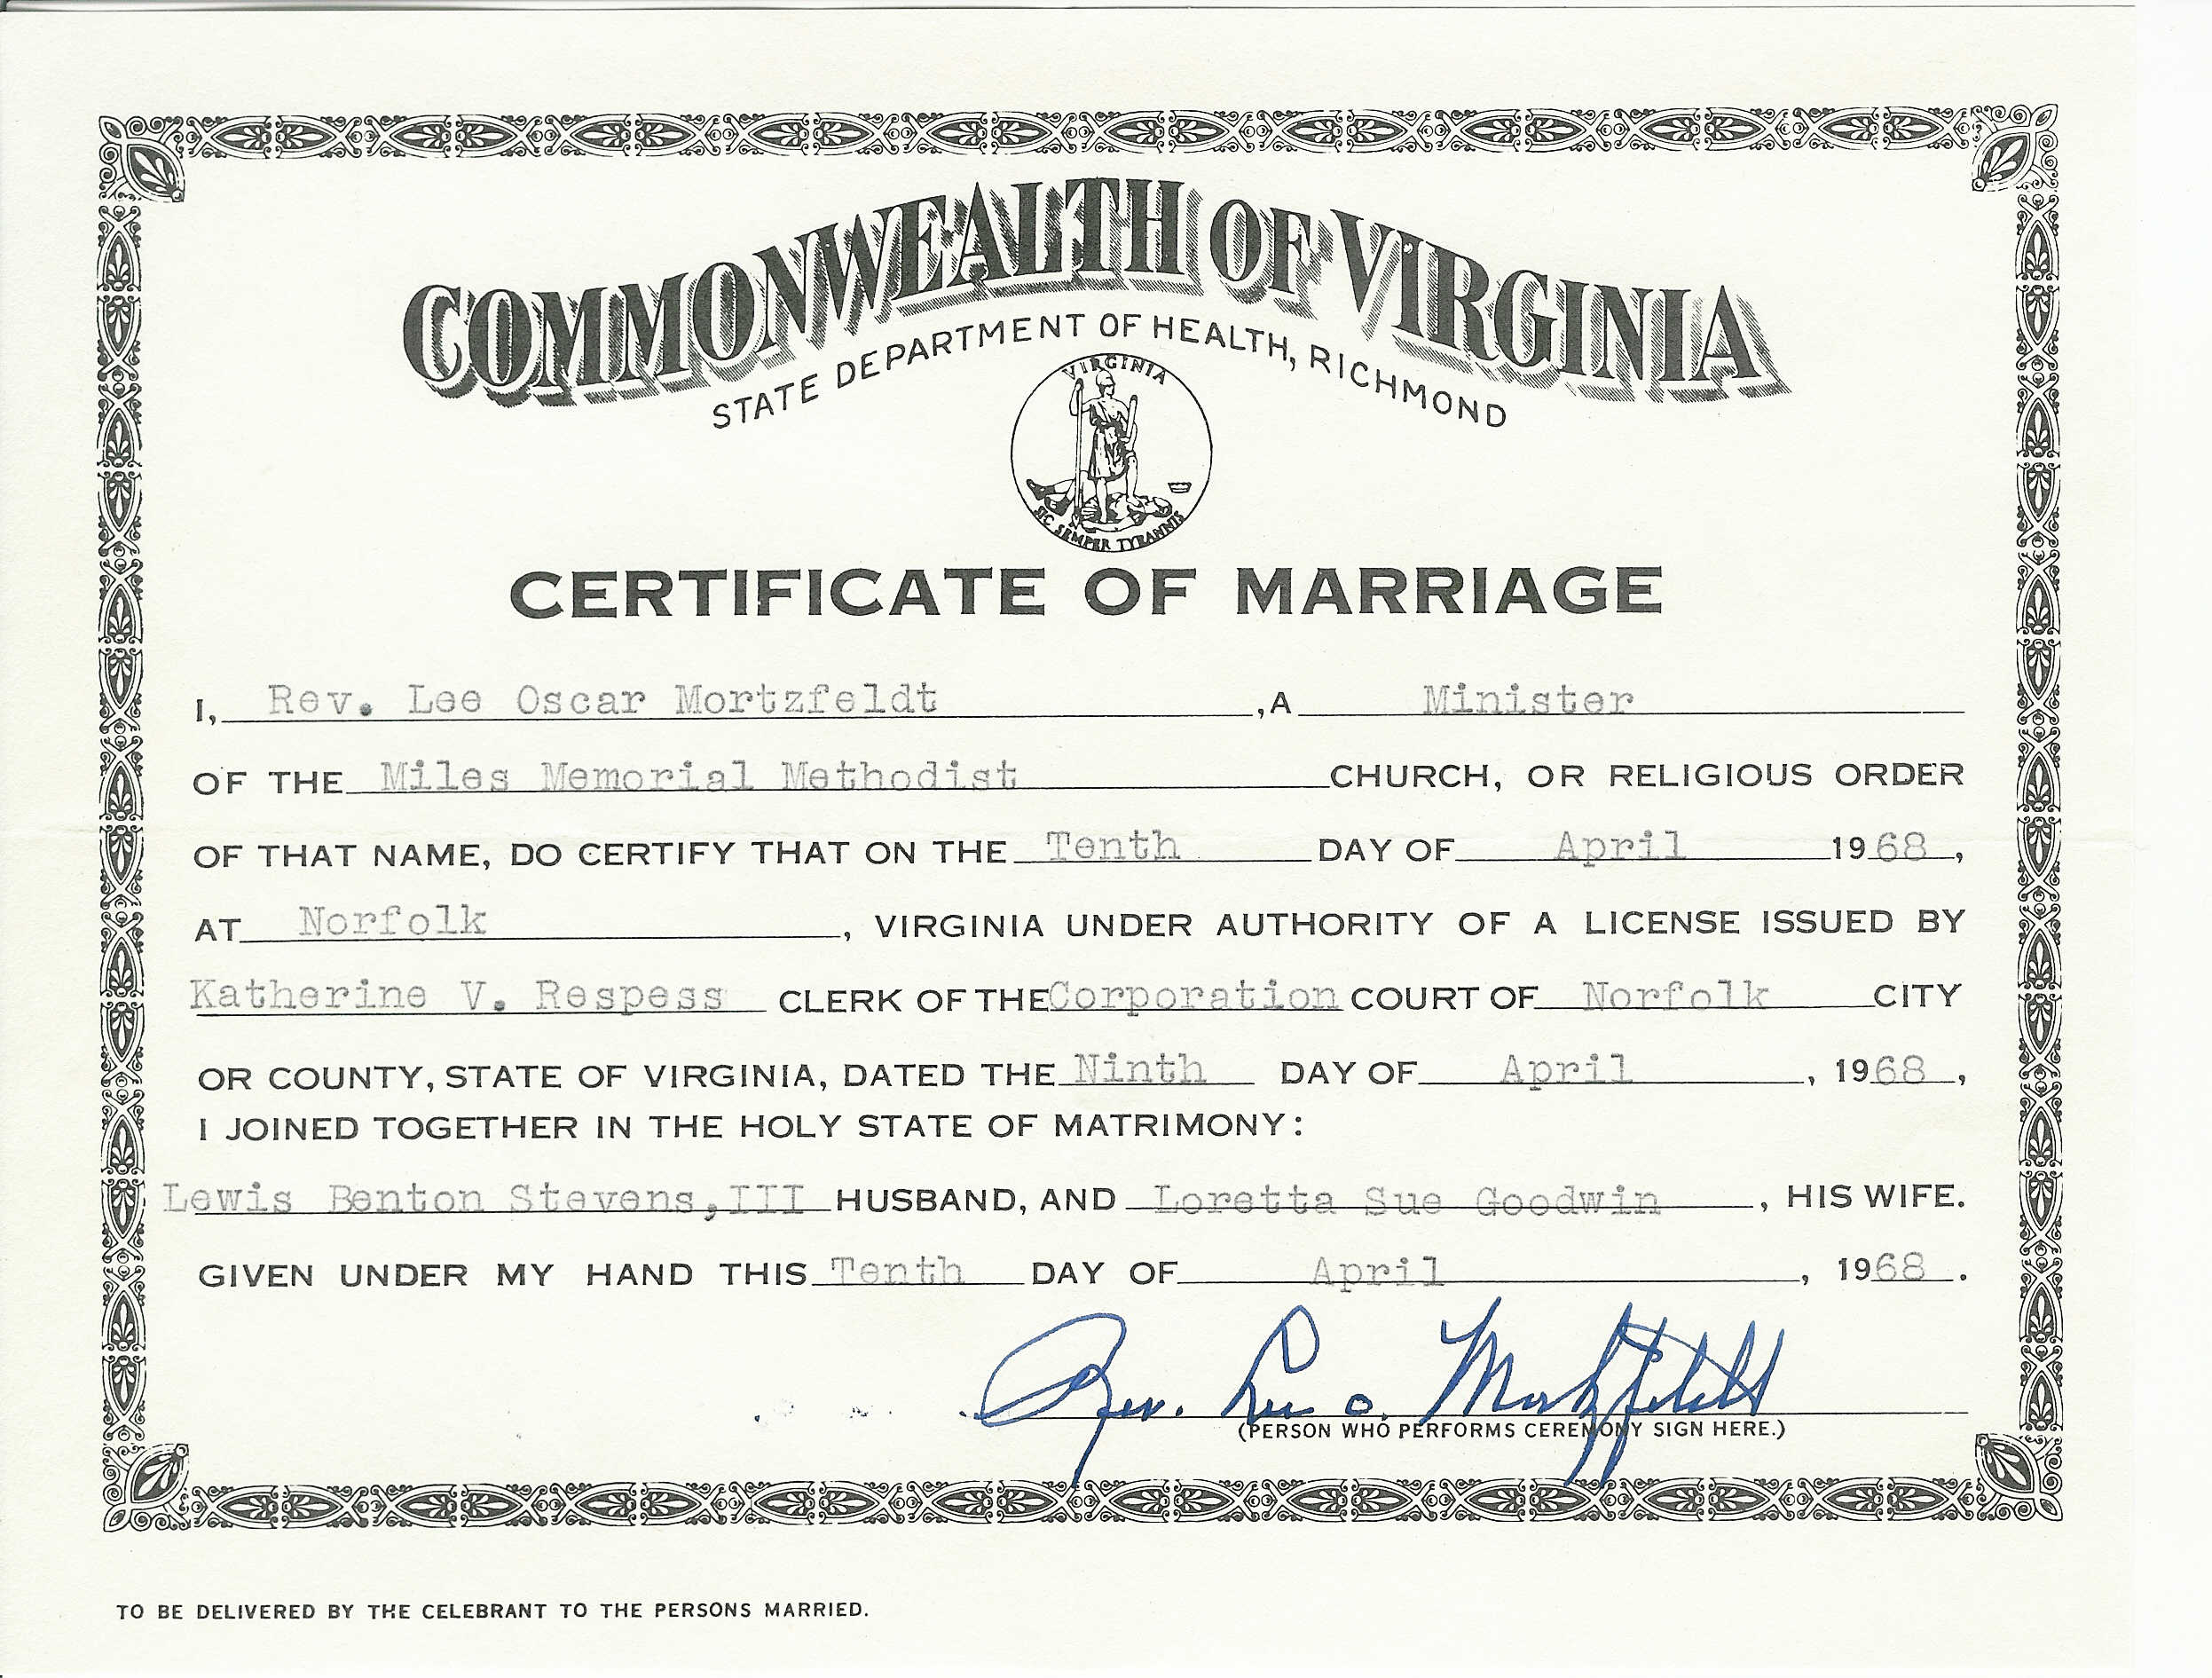 COMMONWEALTH OF VIRGINIA
STATE DEPARTMENT OF HEALTH, RICHMOND
VIRGINIA
SIC SEMPER TYRANNIS
CERTIFICATE OF MARRIAGE
I, Rev. Lee Oscar Mortzfeldt, A Minister
OF THE Miles Memorial Methodist CHURCH, OR RELIGIOUS ORDER
OF THAT NAME, DO CERTIFY THAT ON THE Tenth DAY OF April 1968,
AT Norfolk, VIRGINIA UNDER AUTHORITY OF A LICENSE ISSUED BY
Katherine V. Respess CLERK OF THE Corporation COURT OF Norfolk CITY
OR COUNTY, STATE OF VIRGINIA, DATED THE Ninth DAY OF April, 1968,
I JOINED TOGETHER IN THE HOLY STATE OF MATRIMONY:
Lewis Benton Stevens, III HUSBAND, AND Loretta Sue Goodwin, HIS WIFE.
GIVEN UNDER MY HAND THIS Tenth DAY OF April, 1968.
Rev. Lee O. Mortzfeldt
(PERSON WHO PERFORMS CEREMONY SIGN HERE.)
TO BE DELIVERED BY THE CELEBRANT TO THE PERSONS MARRIED.